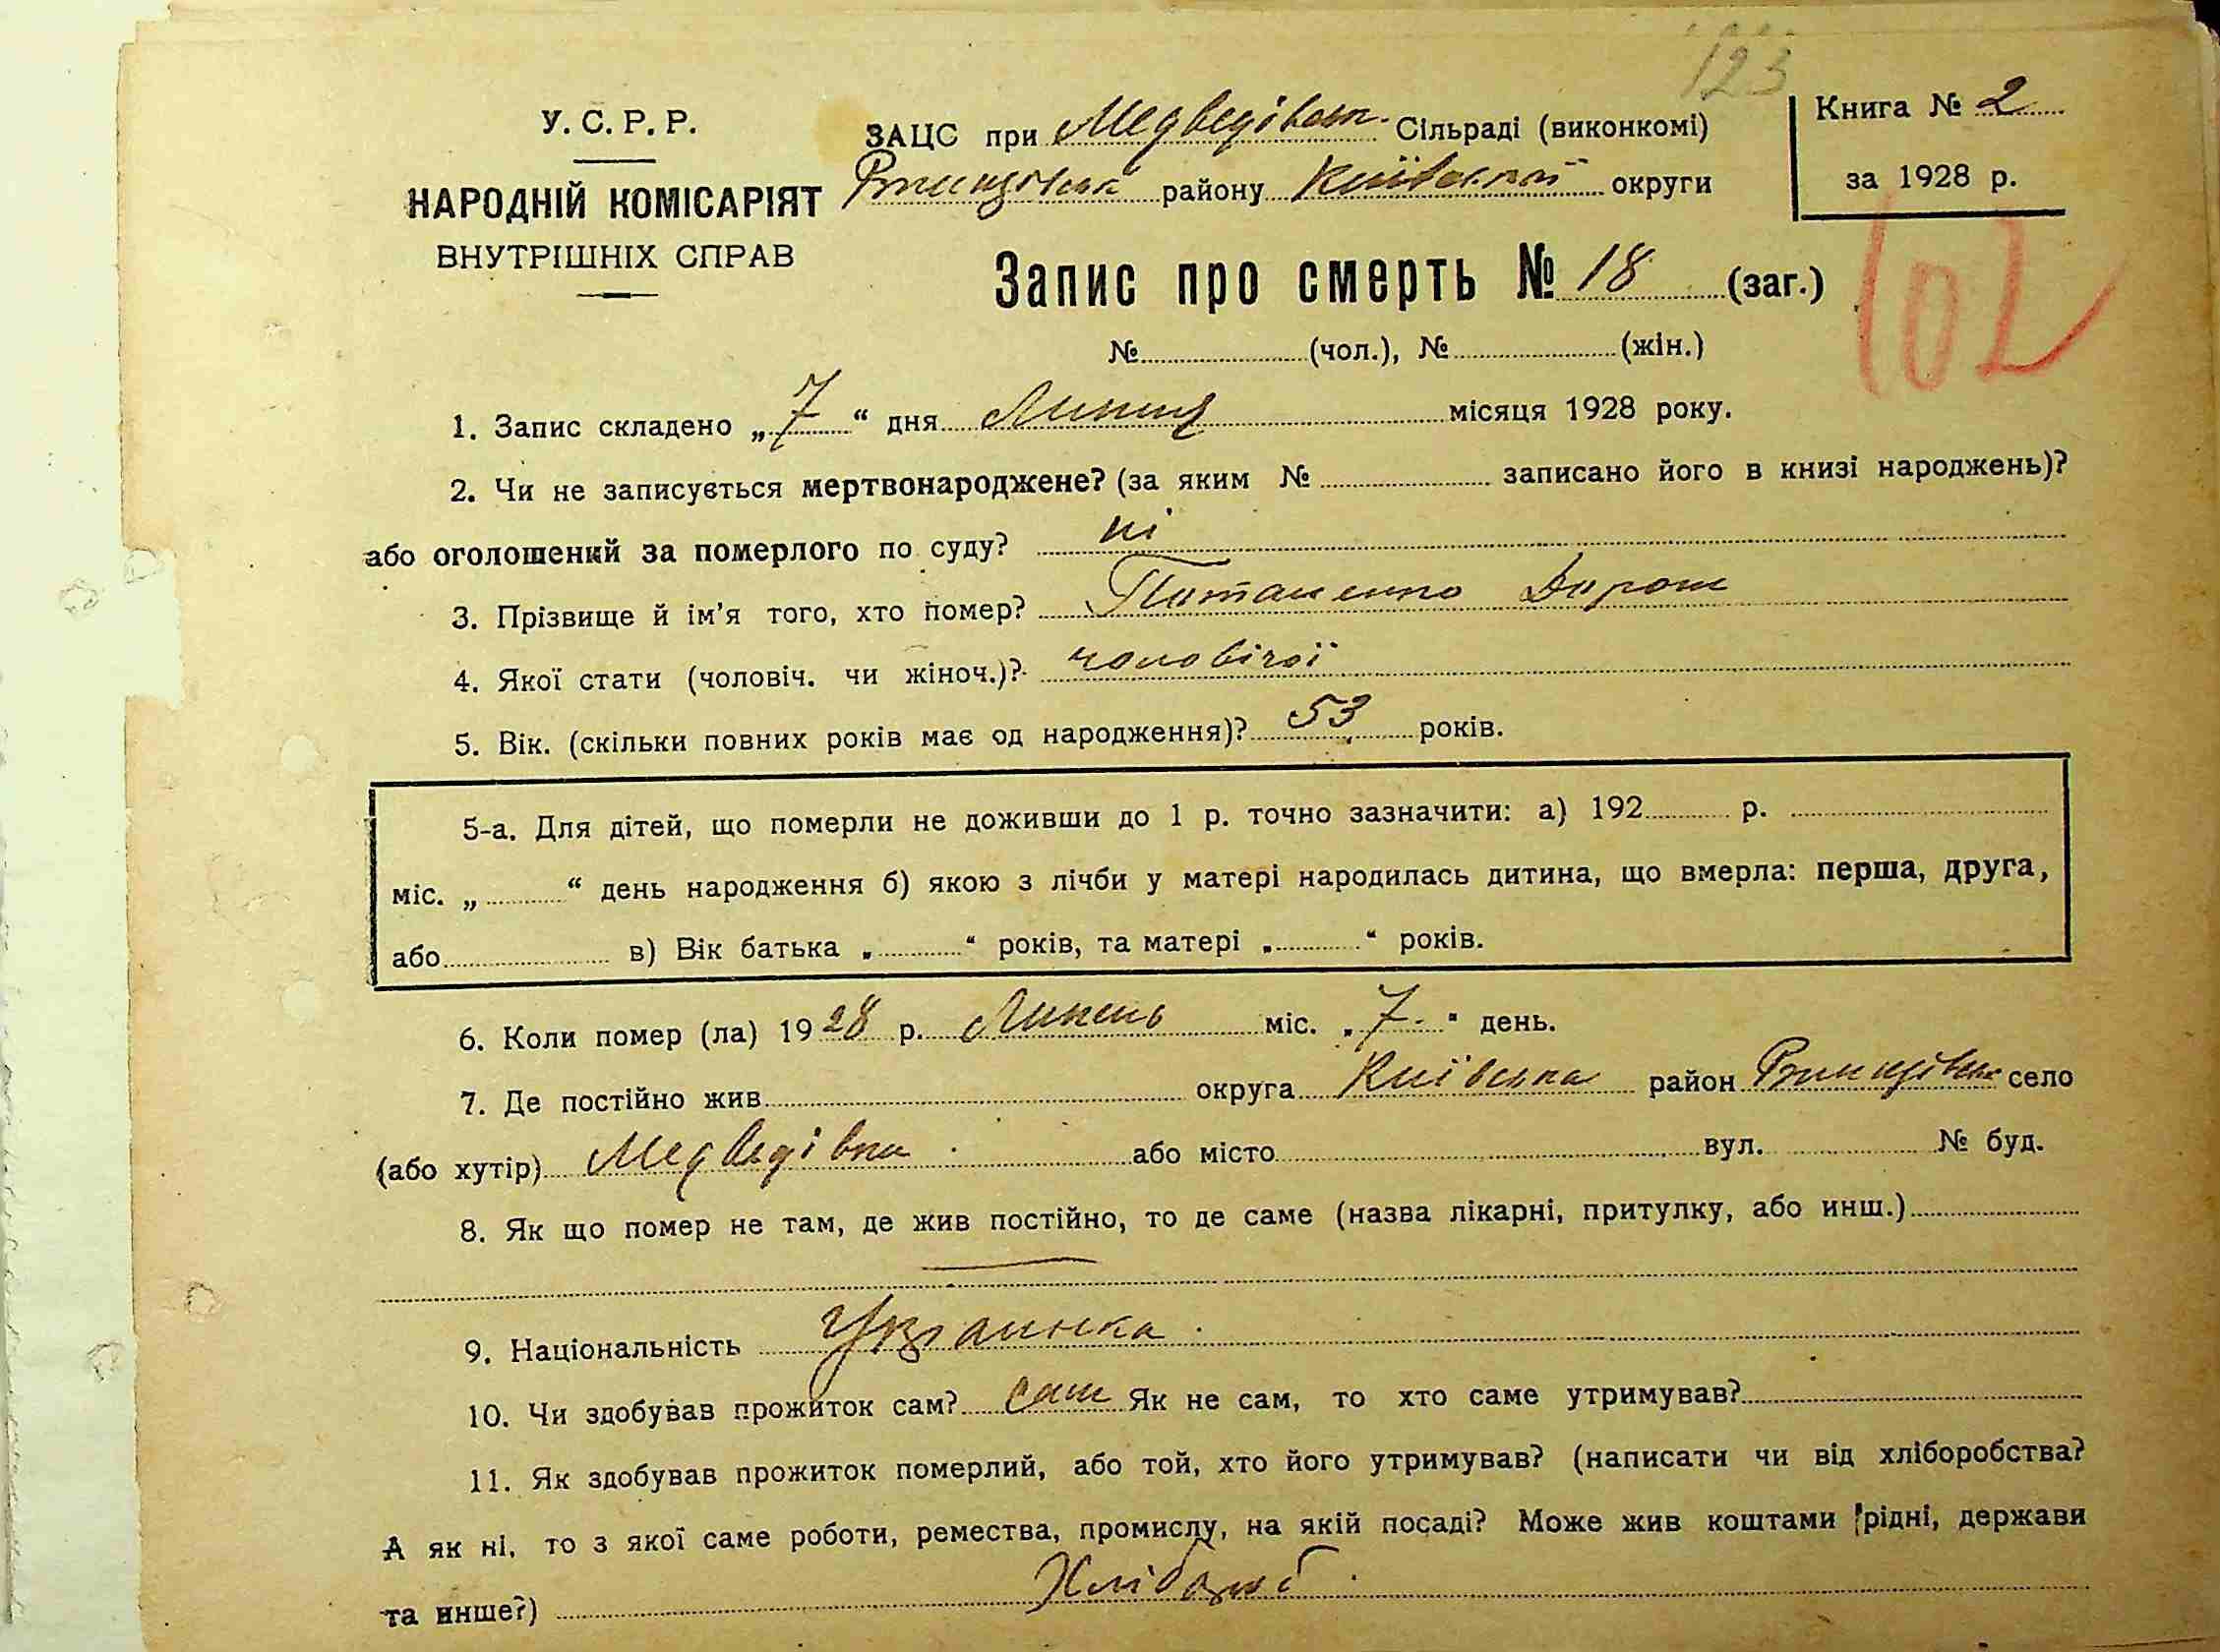 123
У. С. Р. Р.
НАРОДНІЙ КОМІСАРІЯТ
ВНУТРІШНІХ СПРАВ
ЗАЦС при Медведівськ. Сільраді (виконкомі)
Ржищівськ району Київської округи
Книга № 2
за 1928 р.
102
Запис про смерть № 18 (заг.)
№ (чол.), № (жін.)
1. Запис складено „ 7 “ дня Липня місяця 1928 року.
2. Чи не записується мертвонароджене? (за яким № записано його в книзі народжень)?
або оголошений за померлого по суду? ні
3. Прізвище й ім’я того, хто помер? Потапенко Дорош
4. Якої стати (чоловіч. чи жіноч.)? чоловічої
5. Вік. (скільки повних років має од народження)? 53 років.
5-а. Для дітей, що померли не доживши до 1 р. точно зазначити: а) 192 р.
міс. „ “ день народження б) якою з лічби у матері народилась дитина, що вмерла: перша, друга,
або в) Вік батька „ “ років, та матері „ “ років.
6. Коли помер (ла) 1928 р. Липень міс. „ 7 “ день.
7. Де постійно жив округа Київська район Ржищівськ село
(або хутір) Медведівка або місто вул. № буд.
8. Як що помер не там, де жив постійно, то де саме (назва лікарні, притулку, або инш.)
9. Національність Українська
10. Чи здобував прожиток сам? Сам Як не сам, то хто саме утримував?
11. Як здобував прожиток померлий, або той, хто його утримував? (написати чи від хліборобства?
А як ні, то з якої саме роботи, ремества, промислу, на якій посаді? Може жив коштами рідні, держави
та инше?)